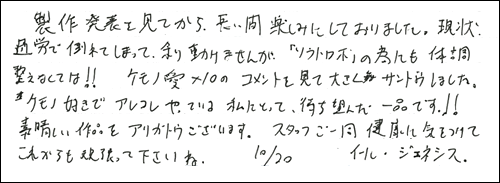 製作発表を見てから、長い間楽しみにしておりました。現状、
過労で倒れてしまって、余り動けませんが、「ソラトロボ」の為にも体調
整えなくては!! ケモノ愛×10のコメントを見て大きくサントウしました。
ケモノ好きでアレコレやっている私にとって、待ち望んだ一品です!!
素晴しい作品をアリガトウございます。スタッフご一同健康に気をつけて
これからも頑張って下さいね。 10/20 イール・ジェネシス。